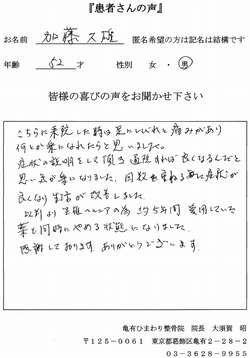 『患者さんの声』
お名前 加藤久雄 匿名希望の方は記名は結構です
年齢 52才 性別 女・男
皆様の喜びの声をお聞かせ下さい
こちらに来院した時は足にしびれと痛みがあり
何とか楽になれたらと思いました。
症状の説明をして頂き通院すれば良くなるんだと
思い気が楽になりました。回数を重ねる毎に症状が
良くなり生活が改善しました。
以前より ヘルニアの為 約5年間 愛用していた
薬も同時にやめる状態になりました。
感謝しております。ありがとうございます。
亀有ひまわり整骨院 院長 大須賀 昭
〒125-0061 東京都葛飾区亀有2-28-2
03-3628-9955